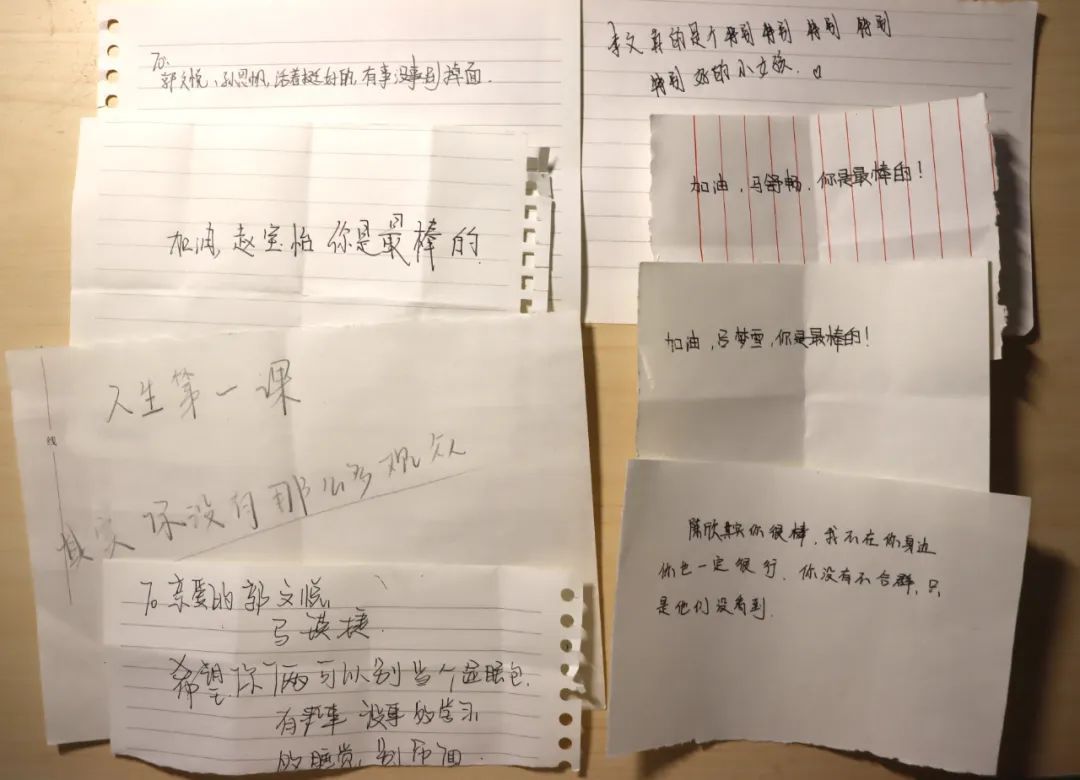 To.
郭文悦、孙思帆,活着挺好的,有事没事别掉面.
加油,赵宝怡 你是最棒的.
人生第一课
其实 你没有那么多观众
线
To 亲爱的郭文悦,
马瑛捷.
希望你们俩可以别当个逗眼包.
有事 没事 的学习
的睡觉,别吊面.
李文 真的是个 特别 特别 特别 特别
特别 好的小女孩.♡
加油,马舒畅,你是最棒的!
加油,马梦雪,你是最棒的!
欣其实你很棒,我不在你身边
你也一定很行.你没有不合群,只
是他们没看到.